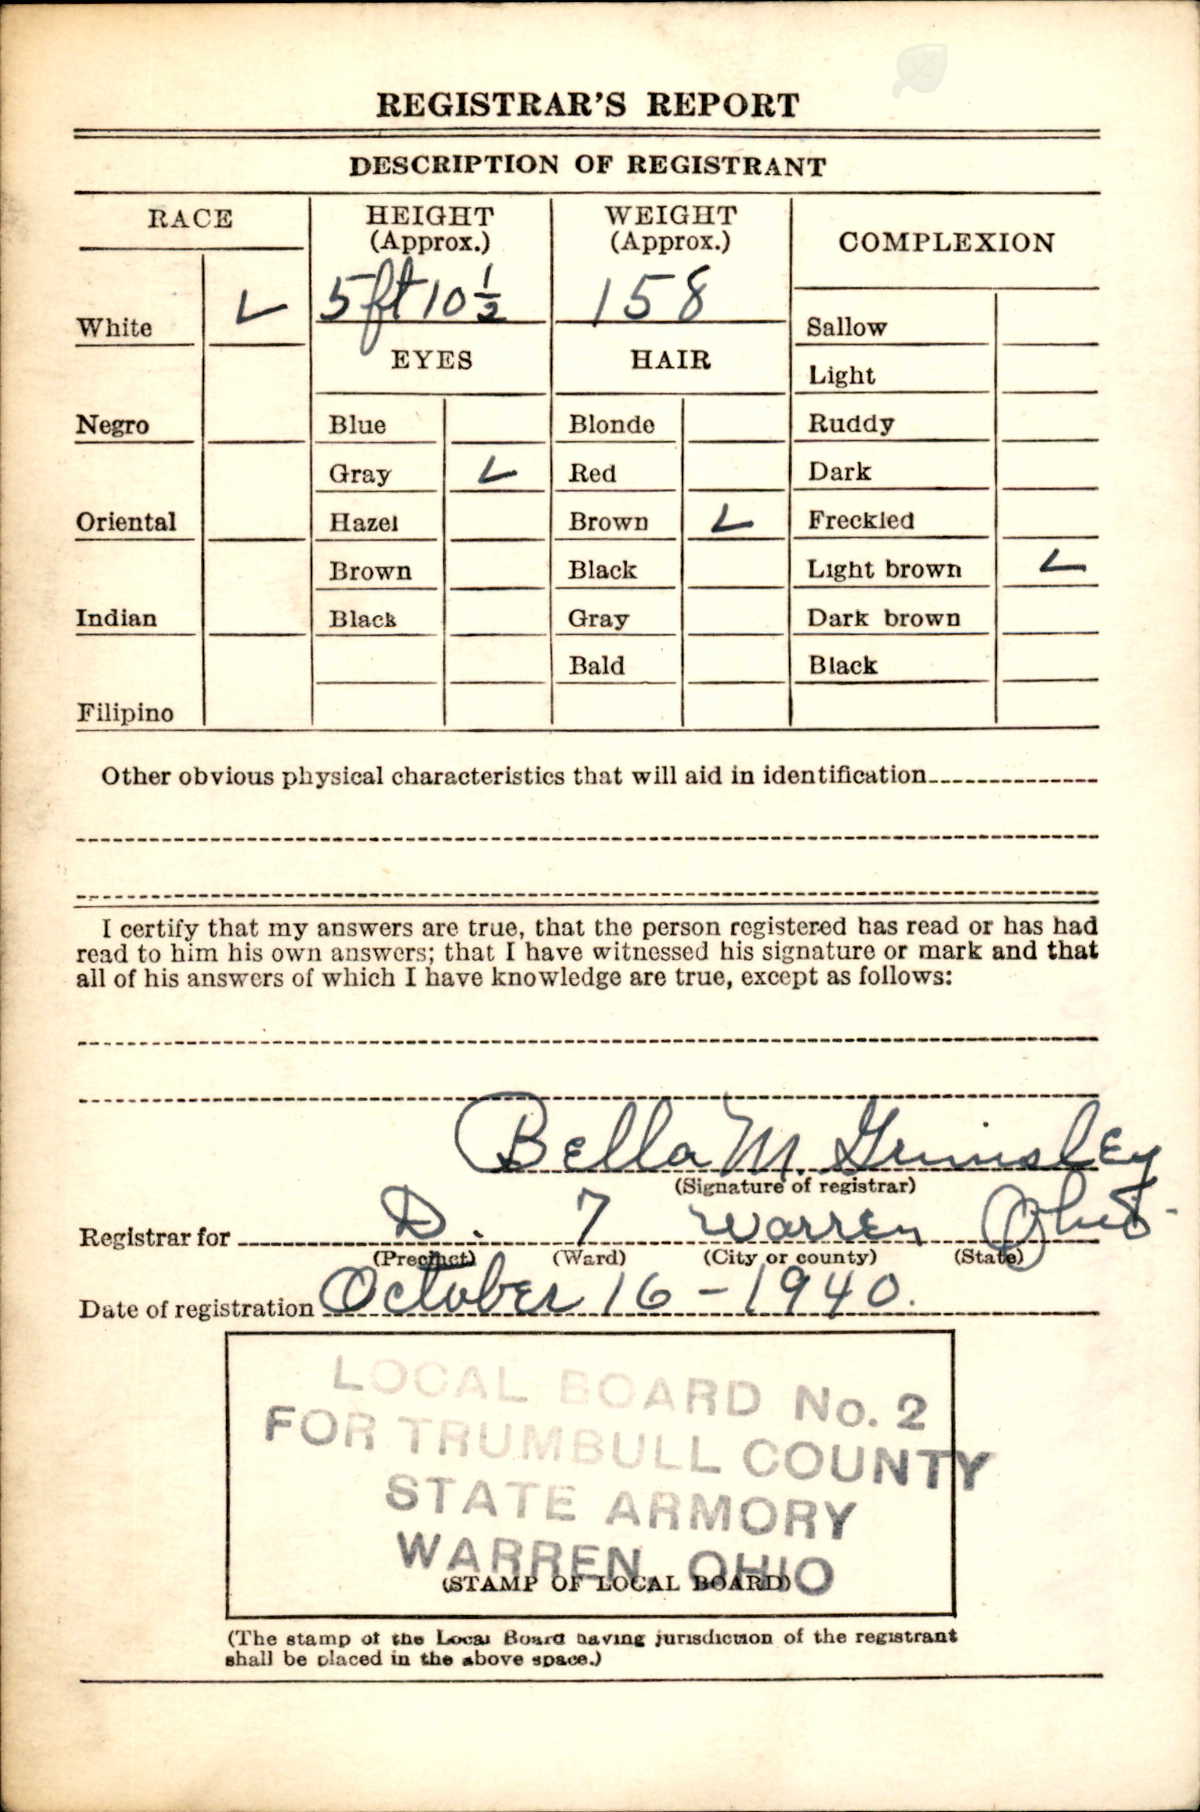 REGISTRAR'S REPORT
DESCRIPTION OF REGISTRANT
RACE
HEIGHT
(Approx.)
WEIGHT
(Approx.)
COMPLEXION
White
5 ft 10 1/2
158
Sallow
EYES
HAIR
Light
Negro
Blue
Blonde
Ruddy
Gray
Red
Dark
Oriental
Hazel
Brown
Freckled
Brown
Black
Light brown
Indian
Black
Gray
Dark brown
Bald
Black
Filipino
Other obvious physical characteristics that will aid in identification
I certify that my answers are true, that the person registered has read or has had
read to him his own answers; that I have witnessed his signature or mark and that
all of his answers of which I have knowledge are true, except as follows:
Bella M. Grimsley
(Signature of registrar)
Registrar for D. 7 Warren Ohio
(Precinct) (Ward) (City or county) (State)
Date of registration October 16 - 1940.
LOCAL BOARD No. 2
FOR TRUMBULL COUNTY
STATE ARMORY
WARREN, OHIO
(STAMP OF LOCAL BOARD)
(The stamp of the Local Board having jurisdiction of the registrant
shall be placed in the above space.)